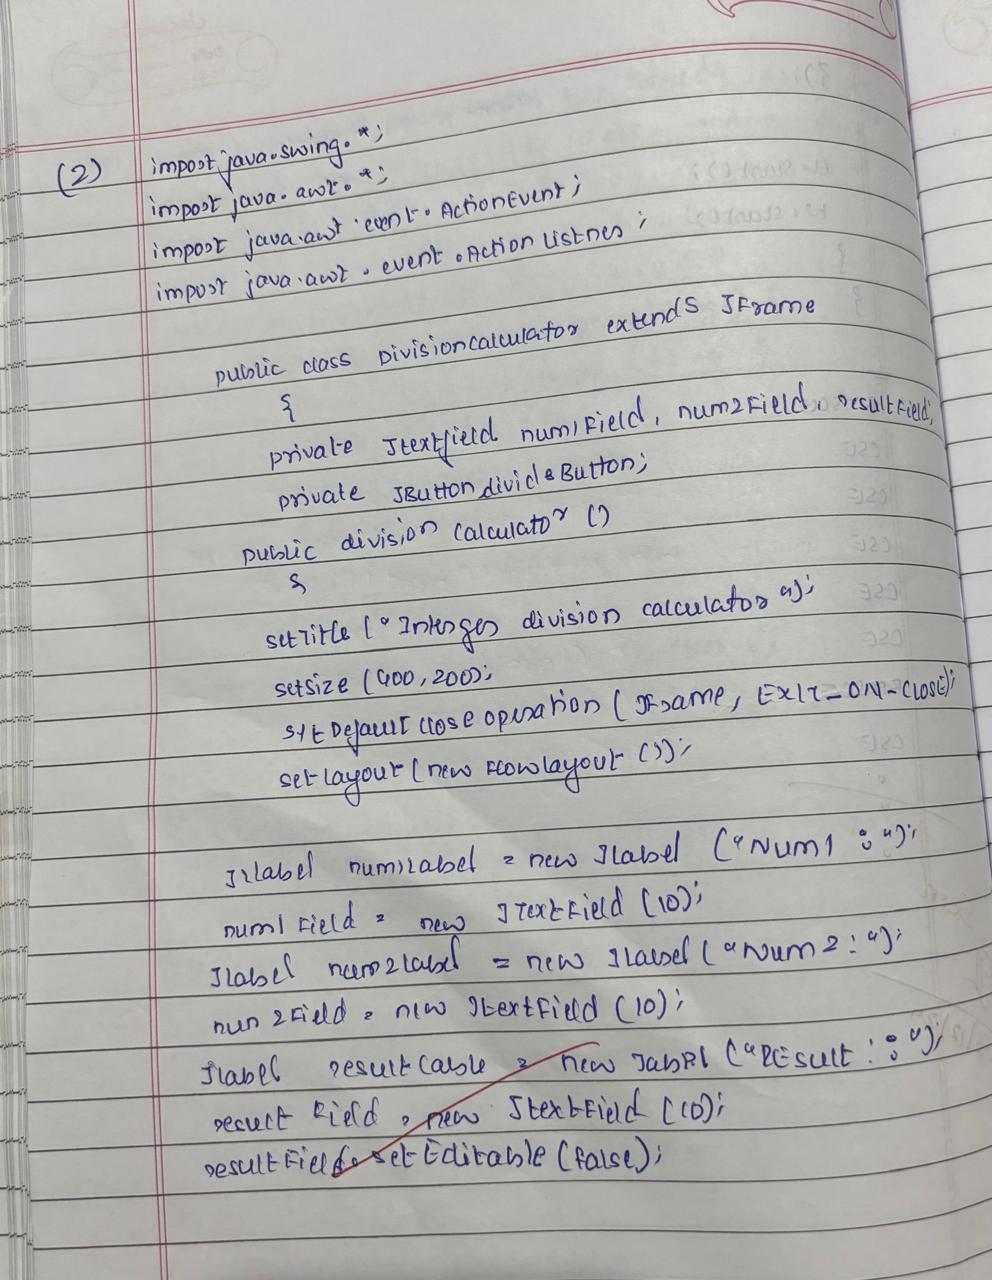 (2) import java.swing.*;
import java.awt.*;
import java.awt.event.ActionEvent;
import java.awt.event.Action Listner;
public class Divisioncalculator extends JFrame
{
private Jtextfield num1Field, num2Field, resultField;
private JButton divideButton;
public division calculator ()
{
setTitle ("Interger division calculator");
setsize (400,200);
setDefault close operation (JFrame, EXIT-ON-CLOSE);
setlayout (new Flowlayout ());
Jlabel num1label = new Jlabel ("Num1 : ");
num1 Field = new JTextField (10);
Jlabel num2label = new Jlabel ("Num2: ");
num 2Field = new JtextField (10);
Jlabel result lable = new Jabel ("REsult : ");
result Field = new JtextField (10);
resultField.setEditable (false);